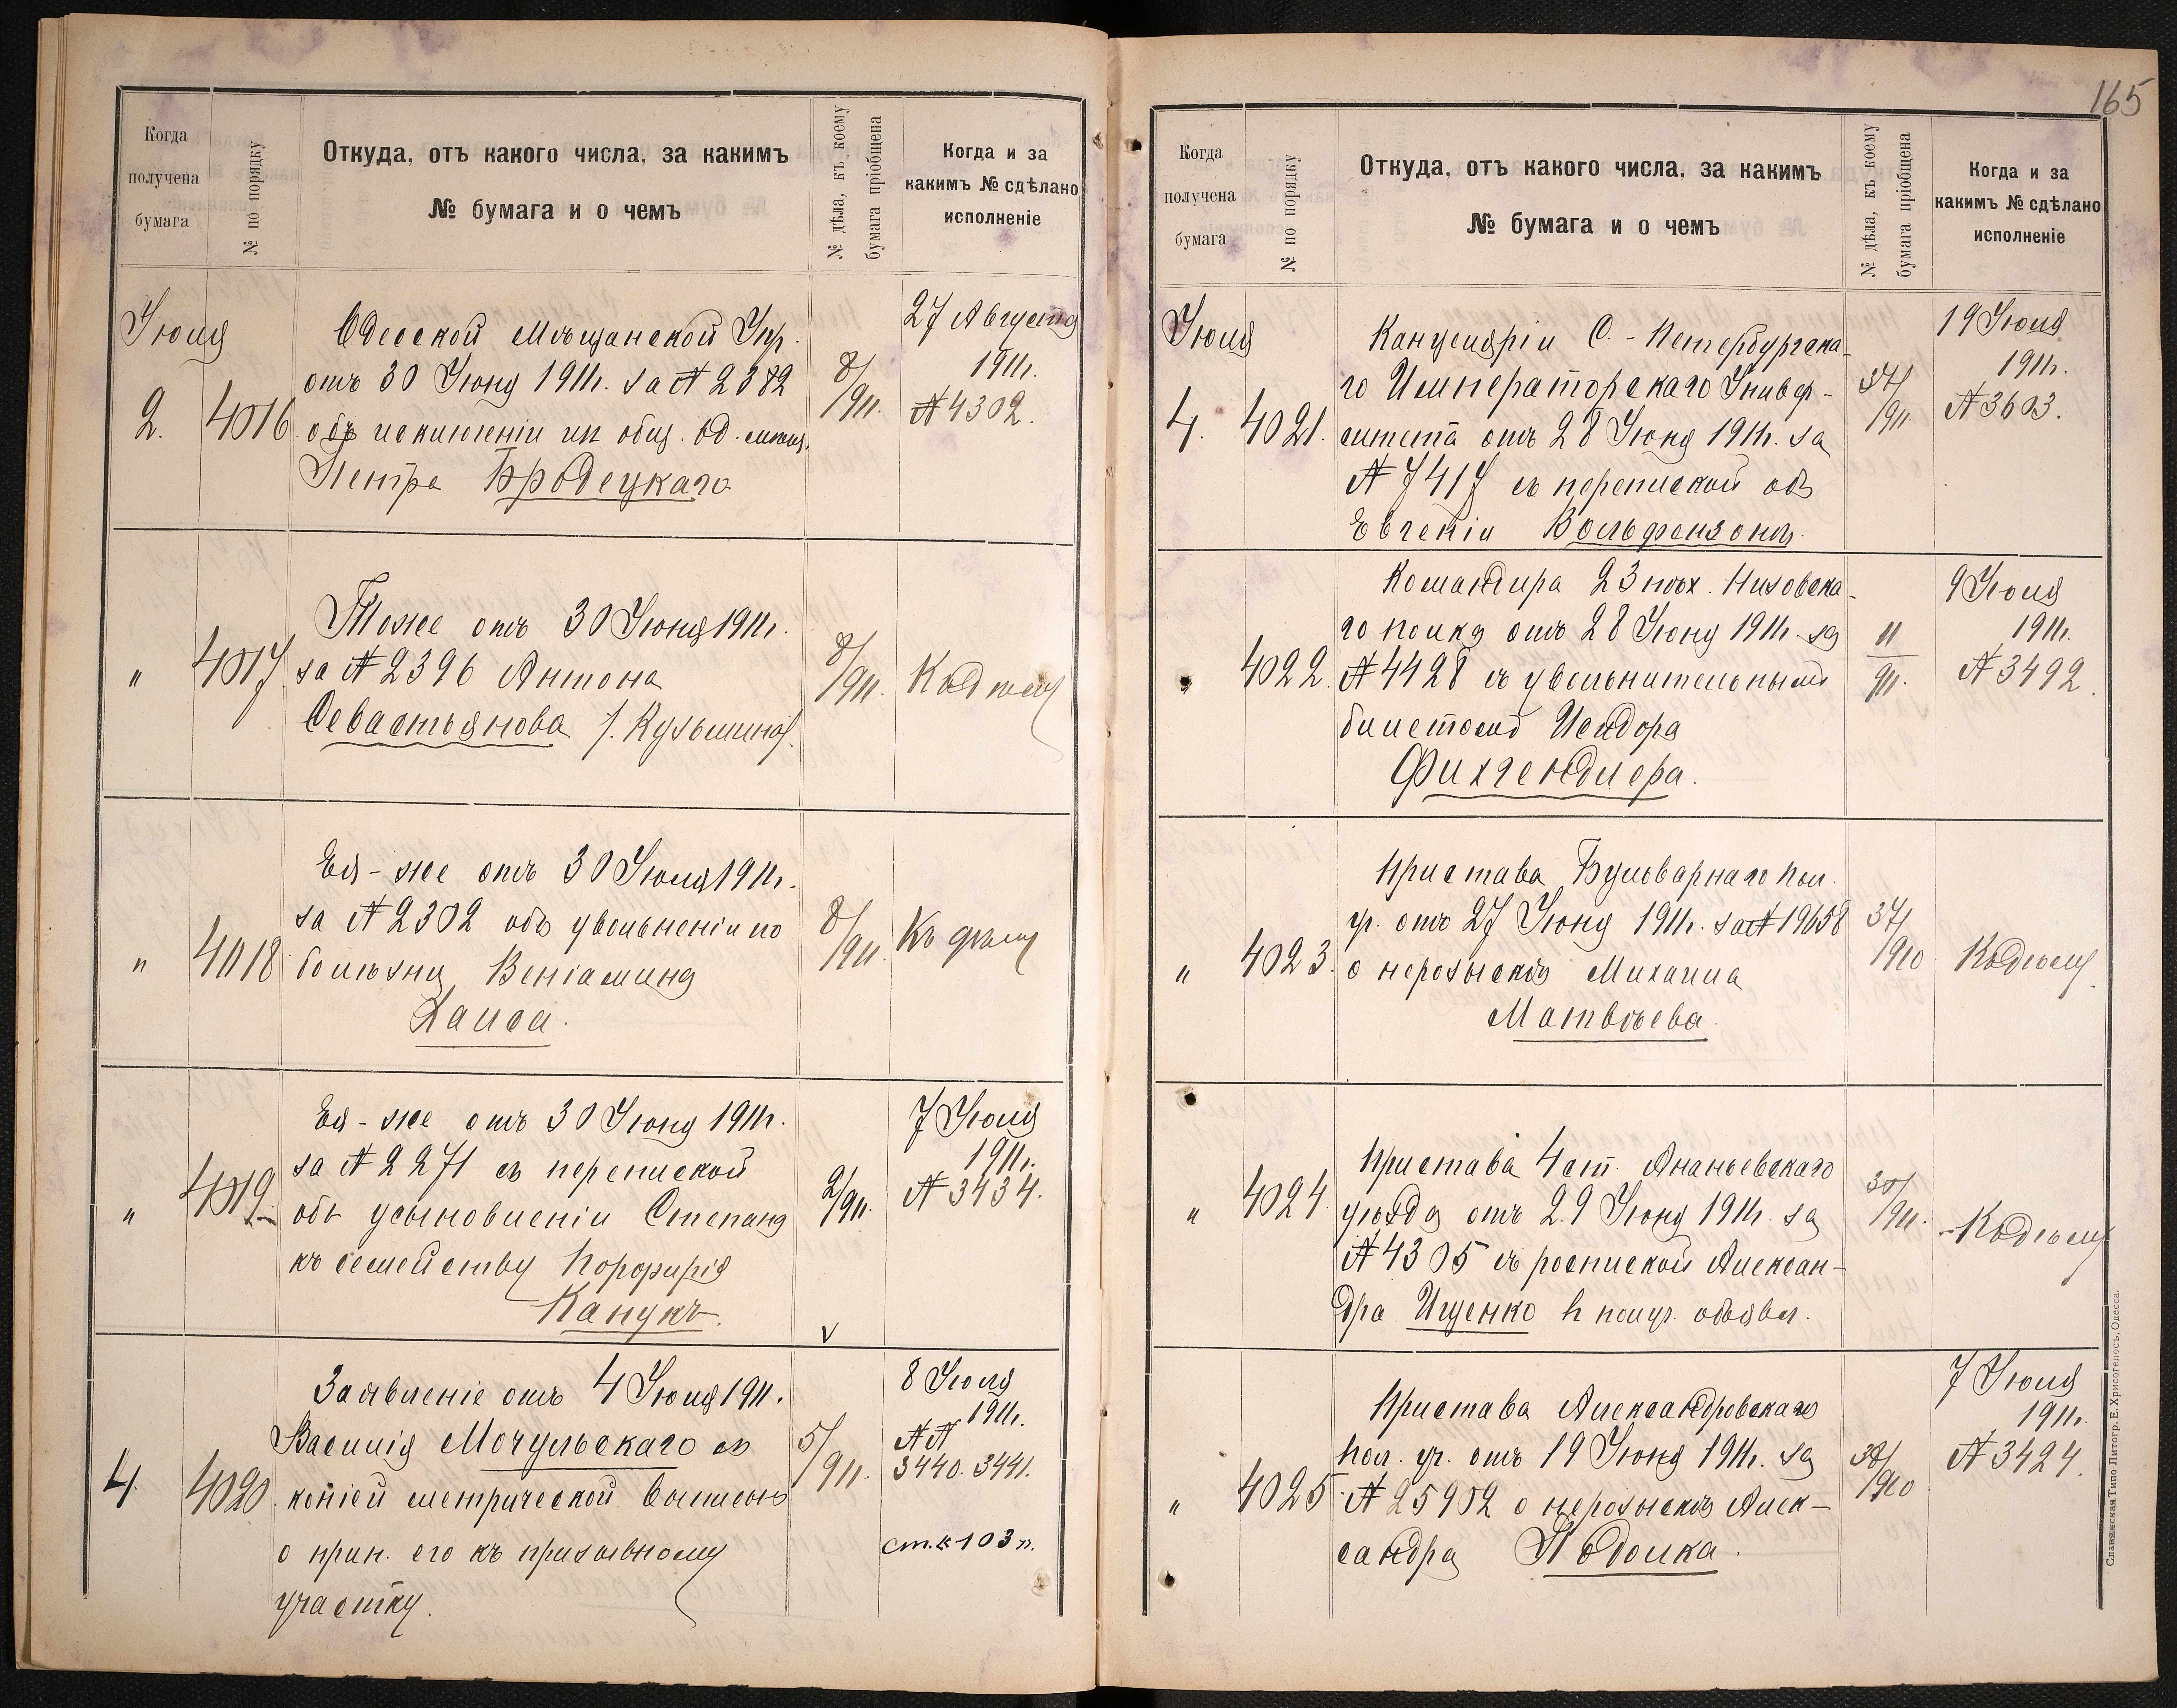 Когда получена бумага
№ по порядку
Откуда, отъ какого числа, за какимъ
№ бумага и о чемъ
№ дѣла, къ коему бумага пріобщена
Когда и за какимъ № сдѣлано исполненіе
Іюля
2.
4016.
Одесской Мѣщанской Упр.
отъ 30 Іюня 1911г. за № 2382
объ исключеніи из общ. Од. мѣщ.
Петра Бродецкаго
8/911.
27 Августа
1911г.
№ 4302.
"
4017.
Тоже отъ 30 Іюня 1911г.
за № 2396 Антона
Севастьянова
8/911.
Къ дѣлу
"
4018
Ея-же отъ 30 Іюня 1911г.
за № 2302 объ увольненіи по
болѣзни Веніамина
8/911.
Къ дѣлу
"
4019
Ея-же отъ 30 Іюня 1911г.
за № 2271 съ перепиской
объ усыновленіи Степана
къ семейству Порфирія
Канукъ.
2/911.
7 Іюля
1911г.
№ 3434.
v
4.
4020.
Заявленіе отъ 4 Іюля 1911.
Василія Мочульскаго съ
копіей метрической выписью
о прип. его къ призывному
участку.
5/911.
8 Іюля
1911г.
№№
3440. 3441.
ст. "103".
165
Когда получена бумага
№ по порядку
Откуда, отъ какого числа, за какимъ
№ бумага и о чемъ
№ дѣла, къ коему бумага пріобщена
Когда и за какимъ № сдѣлано исполненіе
Іюля
4.
4021.
Канцеляріи С.-Петербургска-
го Императорскаго Универ-
ситета отъ 28 Іюня 1911г. за
№ 7417 съ перепиской объ
Евгеніи Вольфензонъ.
37/911.
19 Іюля
1911г.
№ 3603.
"
4022.
Командира 23 пѣх. Низовска-
го полка отъ 28 Іюня 1911г. за
№ 4428 съ увольнительнымъ
билетомъ Исидора
Фихгендлера.
11/911.
9 Іюля
1911г.
№ 3492.
"
4023.
Пристава Бульварнаго пол.
уч. отъ 27 Іюня 1911г. за № 19658
о нерозыскѣ Михаила
Матвѣева.
37/1910
Къ дѣлу.
"
4024.
Пристава 4 ст. Ананьевскаго
уѣзда отъ 29 Іюня 1911г. за
№ 4305 съ роспиской Алексан-
дра Ищенко
Къ дѣлу
"
4025
Пристава Александровскаго
пол. уч. отъ 19 Іюня 1911г. за
№ 25902 о нерозыскѣ Алек-
сандра
38/1910
7 Іюля
1911г.
№ 3424.
Славянская Типо-Литогр. Е. Хрисогелосъ, Одесса.